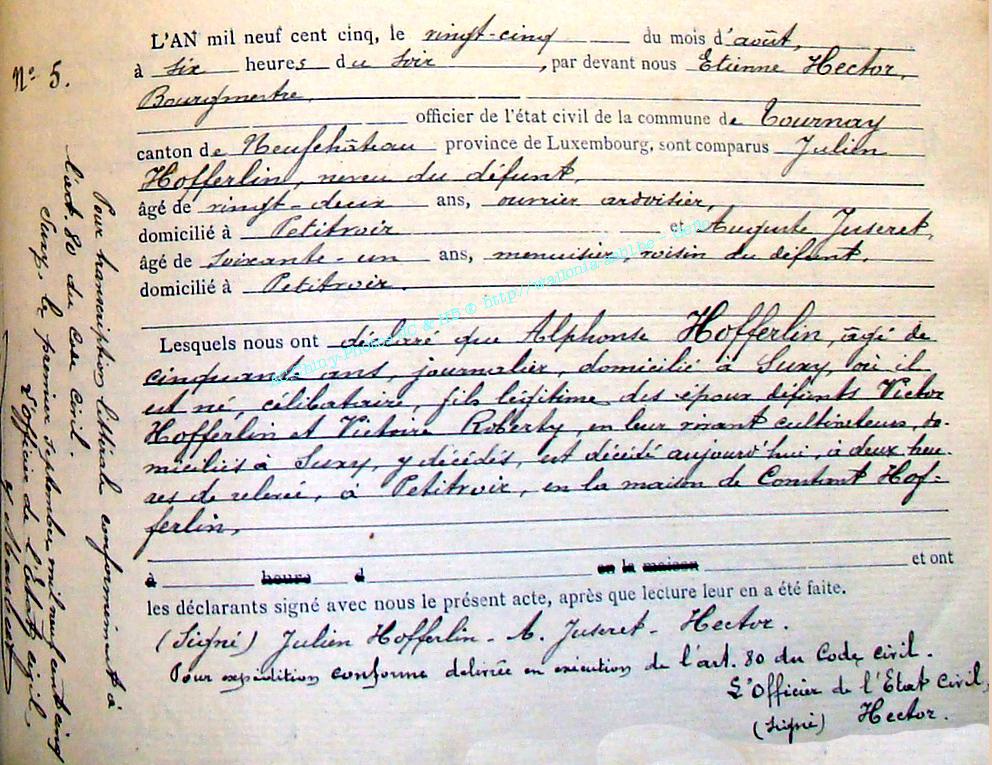 N° 5.
L'AN mil neuf cent cinq, le vingt-cinq du mois d'août,
à six heures du soir, par devant nous Etienne Hector,
Bourgmestre,
officier de l'état civil de la commune de Tournay
canton de Neufchâteau province de Luxembourg, sont comparus Julien
Hofferlin, neveu du défunt,
âgé de vingt-deux ans, ouvrier ardoisier,
domicilié à Petitvoir et Auguste Juseret,
âgé de soixante-un ans, menuisier, voisin du défunt,
domicilié à Petitvoir.
Lesquels nous ont déclaré que Alphonse Hofferlin, âgé de
cinquante ans, journalier, domicilié à Suxy, où il
est né, célibataire, fils légitime des époux défunts Victor
Hofferlin et Victoire Roberty, en leur vivant cultivateurs, do-
miciliés à Suxy, y décédés, est décédé aujourd'hui, à deux heu-
res de relevée, à Petitvoir, en la maison de Constant Hof-
ferlin,
à heure d en la maison et ont
les déclarants signé avec nous le présent acte, après que lecture leur en a été faite.
(Signé) Julien Hofferlin - A. Juseret - Hector.
Pour expédition conforme délivrée en exécution de l'art. 80 du Code civil.
L'Officier de l'Etat Civil,
(signé) Hector.
Pour transcription littérale conformément à
l'art. 80 du Code Civil.
Suxy, le premier septembre mil neuf cent cinq
L'officier de l'Etat civil.
http://wallonia.